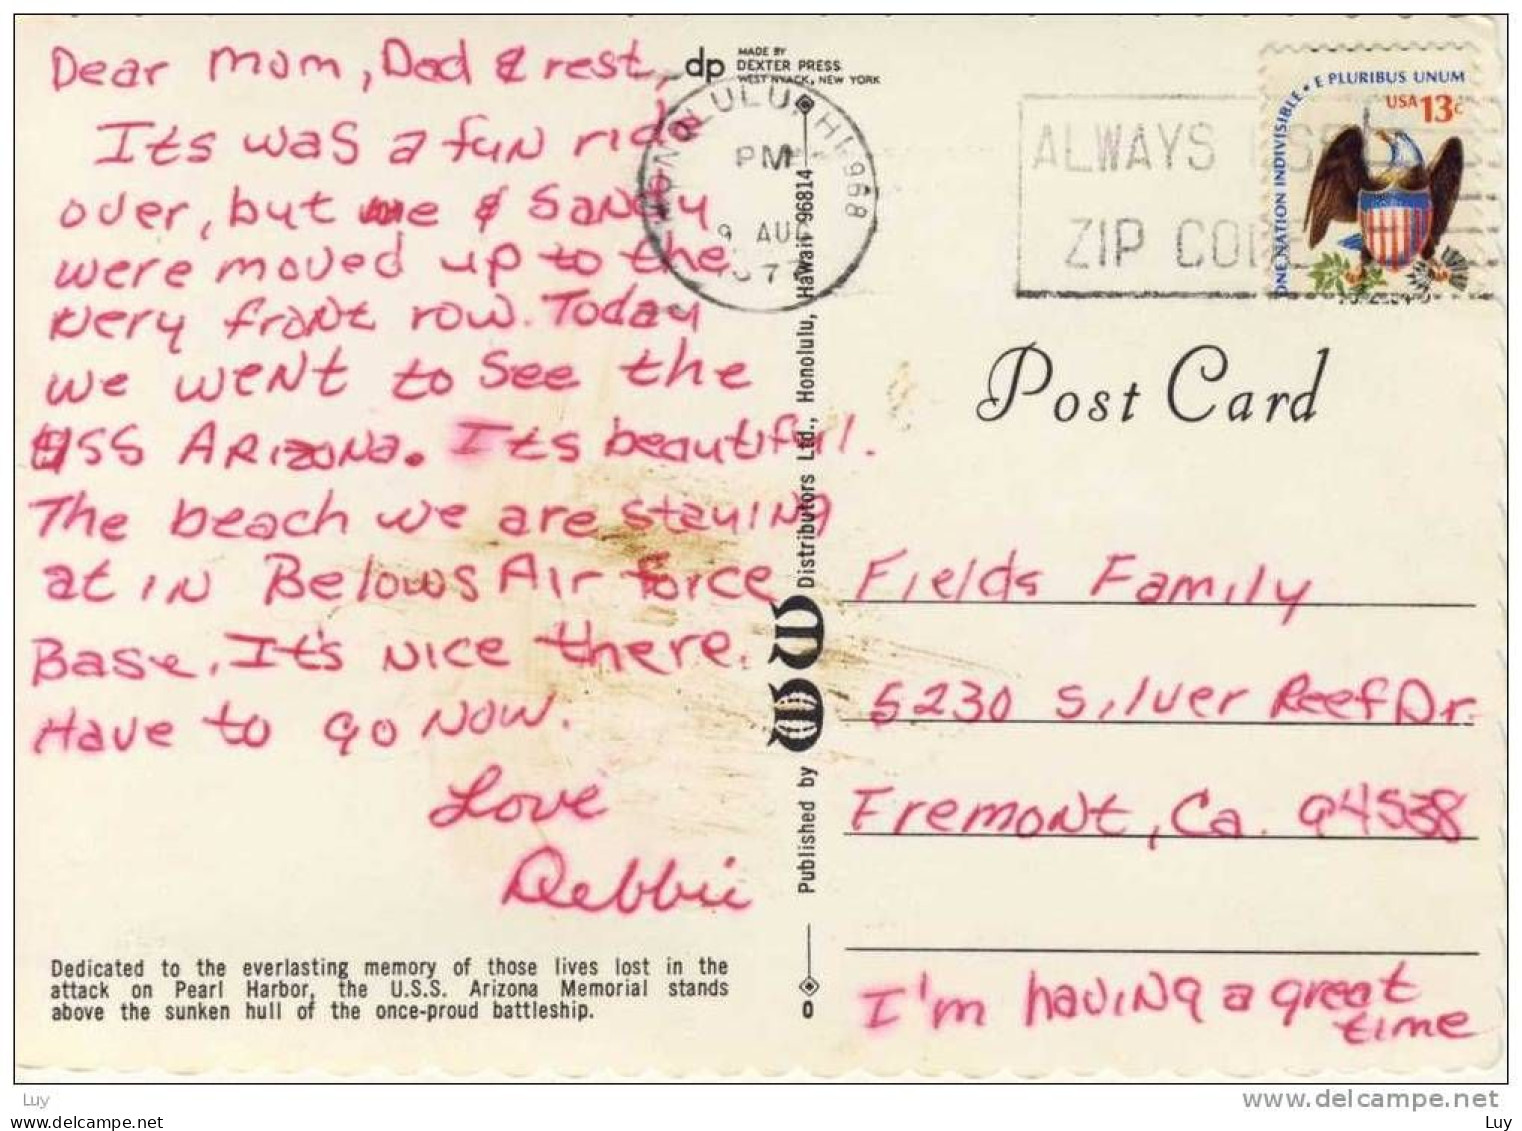 Dear Mom, Dad & rest,
Its was a fun ride
over, but me & Sandy
were moved up to the
very front row. Today
we went to see the
USS Arizona. Its beautiful.
The beach we are staying
at in Belows Air force
Base. It's nice there.
Have to go now.
Love
Debbie
Dedicated to the everlasting memory of those lives lost in the
attack on Pearl Harbor, the U.S.S. Arizona Memorial stands
above the sunken hull of the once-proud battleship.
dp
MADE BY
DEXTER PRESS
WEST NYACK, NEW YORK
HONOLULU, HI 968
PM
9 AUG
1977
Published by Distributors Ltd., Honolulu, Hawaii 96814
0
ALWAYS USE
ZIP CODE
ONE NATION INDIVISIBLE • E PLURIBUS UNUM
USA 13c
Post Card
Fields Family
5230 Silver Reef Dr.
Fremont, Ca. 94538
I'm having a great
time
www.delcampe.net
Luy
www.delcampe.net
Luy